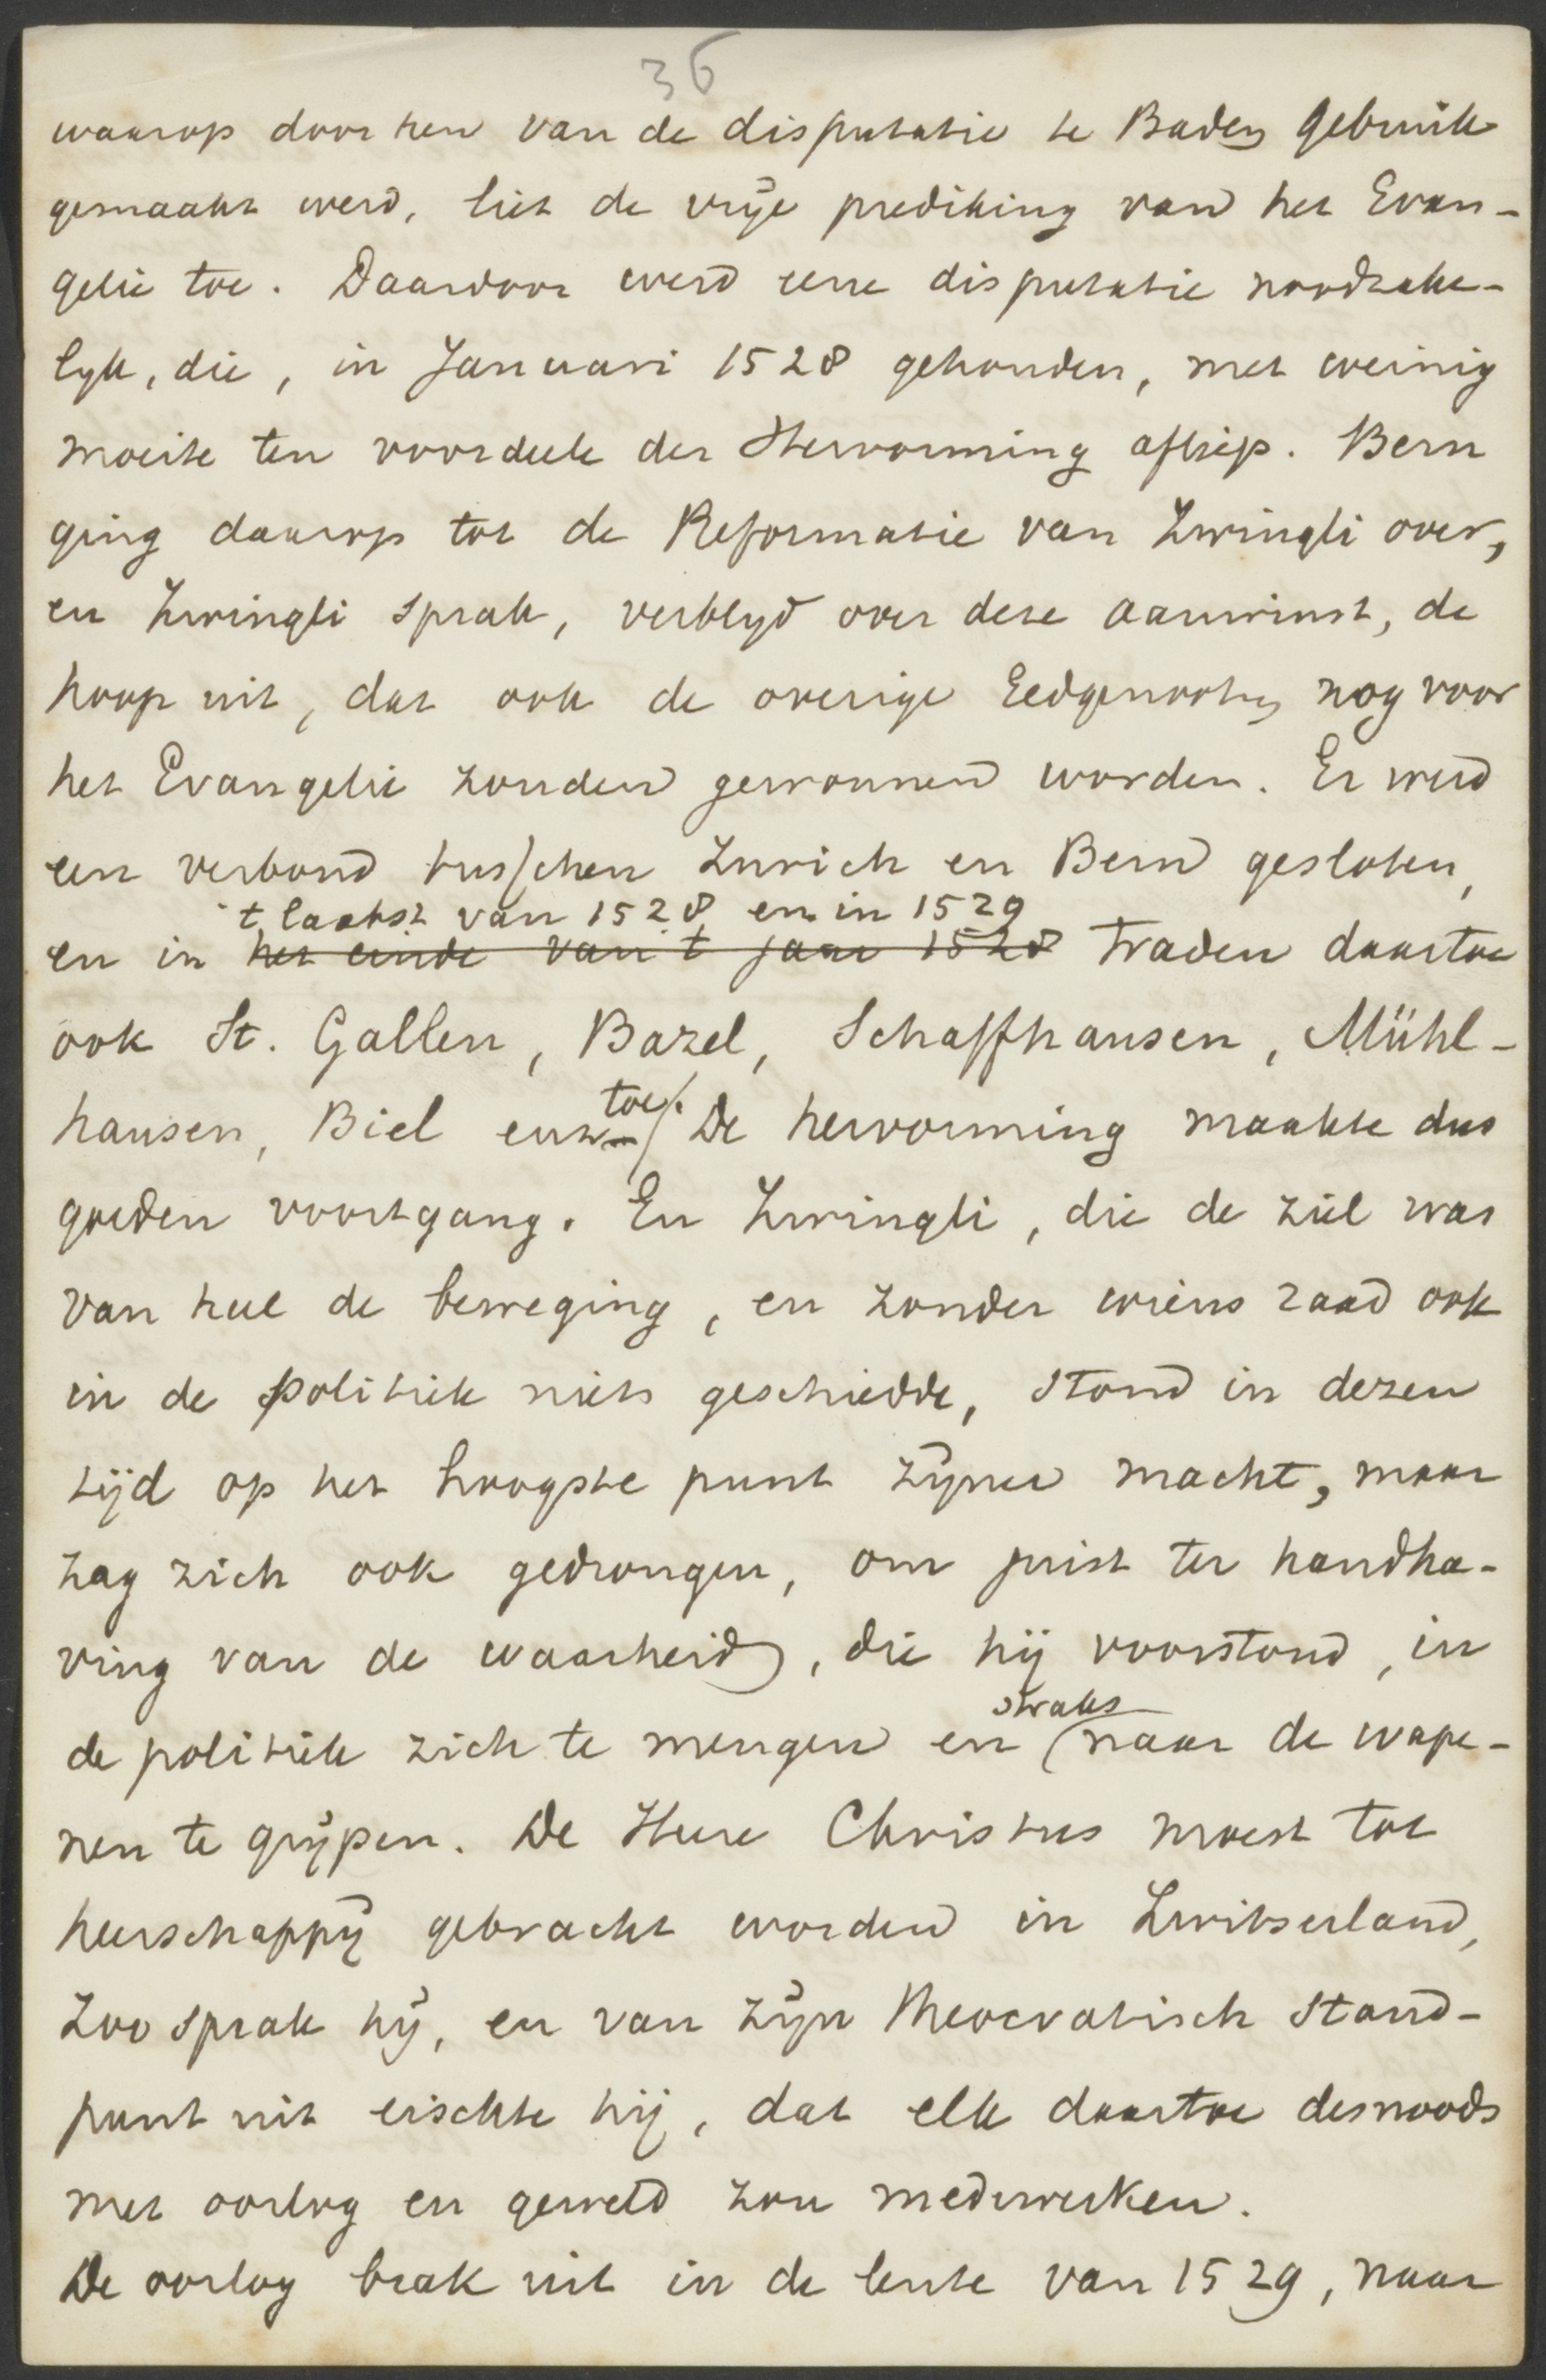 36
waarop door hen van de disputatie te Baden gebruik
gemaakt werd, liet de vrije prediking van het Evan-
gelie toe. Daardoor werd eene disputatie noodzake-
lijk, die, in Januari 1528 gehouden, met weinig
moeite ten voordeele der Hervorming afliep. Bern
ging daarop tot de Reformatie van Zwingli over,
en Zwingli sprak, verblijd over deze aanwinst, de
hoop uit, dat ook de overige Eedgenooten nog voor
het Evangelie zouden gewonnen worden. Er werd
een verbond tusschen Zurich en Bern gesloten,
't laatst van 1528 en in 1529
en in het einde van 't jaar 1528 traden daartoe
ook St. Gallen, Bazel, Schaffhausen, Mühl-
hausen, Biel enz. toe. De hervorming maakte dus
goeden voortgang. En Zwingli, die de ziel was
van heel de beweging, en zonder wiens raad ook
in de politiek niets geschiedde, stond in dezen
tijd op het hoogste punt zijner macht, maar
zag zich ook gedrongen, om juist ter handha-
ving van de waarheid, die hij voorstond, in
straks
de politiek zich te mengen en naar de wape-
nen te grijpen. De Heere Christus moest tot
heerschappij gebracht worden in Zwitserland,
zoo sprak hij, en van zijn theocratisch stand-
punt uit eischte hij, dat elk daartoe desnoods
met oorlog en geweld zou medewerken.
De oorlog brak uit in de lente van 1529, maar